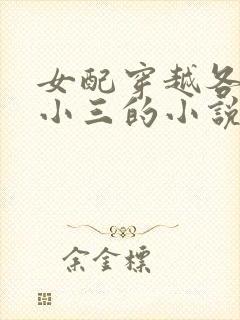 女配穿越各
小三的小说
余金標